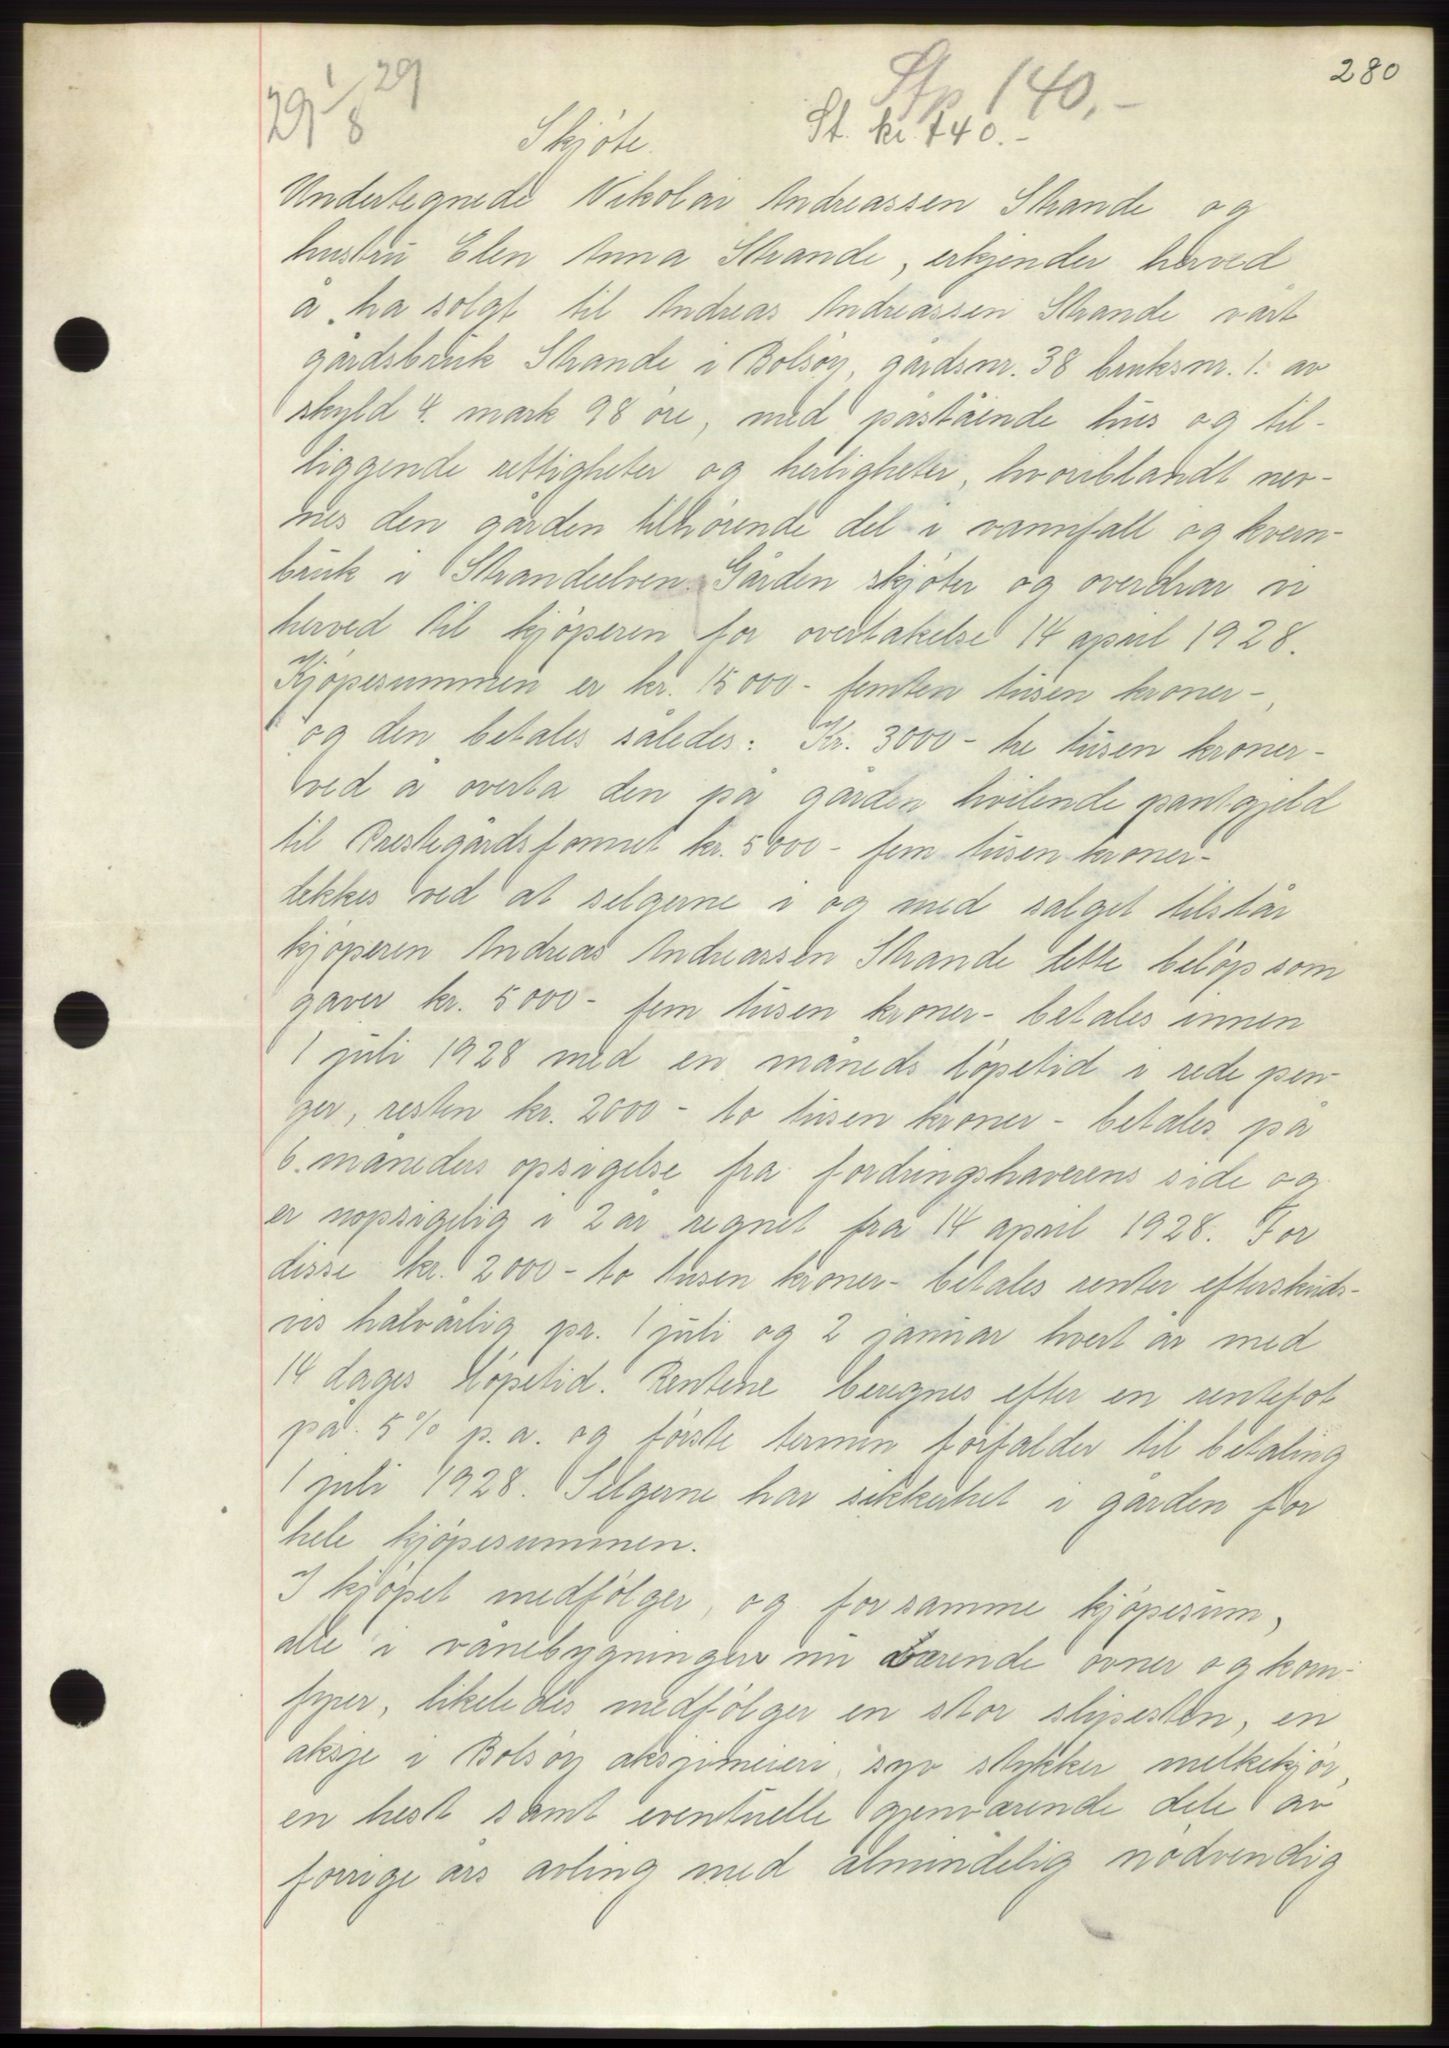 280
29 1/8 29
Stp 140,-
Skjøte. St. kr. 140.-
Undertegnede Nikolai Andreassen Strande og
hustru Elen Anna Strande, erkjender herved
å ha solgt til Andreas Andreassen Strande vårt
gårdsbruk Strande i Bolsøy, gårdsnr. 38 bruksnr. 1. av
skyld 4. mark 98 øre, med påstående hus og til-
liggende rettigheter og herligheter, hvoriblandt nev-
nes den gården tilhørende del i vannfall og kvern-
bruk i Strandeelven. Gården skjøter og overdrar vi
herved til kjøperen for overtakelse 14 april 1928.
Kjøpesummen er kr. 15000 - femten tusen kroner -,
og den betales således: Kr. 3000 - tre tusen kroner -
ved å overta den på gården hvilende pantgjeld
til Prestegårdsfonnet kr. 5000 - fem tusen kroner -
dekkes ved at selgerne i og med salget tilstår
kjøperen Andreas Andreassen Strande dette beløp som
gaver kr. 5000 - fem tusen kroner - betales innen
1 juli 1928 med en måneds løpetid i rede pen-
ger, resten kr. 2000 - to tusen kroner - betales på
6. måneders opsigelse fra fordringshaverens side og
er uopsigelig i 2 år regnet fra 14 april 1928. For
disse kr. 2000 - to tusen kroner - betales renter efterskuds-
vis halvårlig pr. 1 juli og 2 januar hvert år med
14 dages løpetid. Rentene beregnes efter en rentefot
på 5% p.a. og første termin forfalder til betaling
1 juli 1928. Selgerne har sikkerhet i gården for
hele kjøpesummen.
I kjøpet medfølger, og for samme kjøpesum,
alle i vånebygningen nu værende ovner og kom-
fyrer, likeledes medfølger en stor slipesten, en
aksje i Bolsøy aksjemeieri, syv stykker melkekjør,
en hest samt eventuelle gjenværende dele av
forrige års avling med almindelig nødvendig